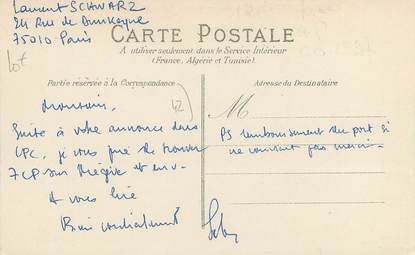 Laurent SCHWARZ
24 Rue de Dunkerque
75010 Paris
CARTE POSTALE
A utiliser seulement dans le Service Intérieur
(France, Algérie et Tunisie).
10€
Partie réservée à la Correspondance
Adresse du Destinataire
42
Monsieur,
Suite à votre annonce dans
CPC, je vous prie de trouver
7 CP sur et
A vous lire
Bien cordialement
M
PS remboursement du port si
ne convenant pas merci